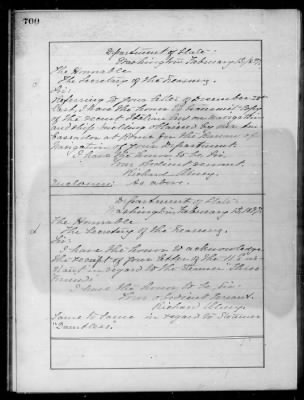 700
Department of State.
Washington February 13, 1897.
The Honorable
The Secretary of the Treasury.
Sir:
Referring to your letter of December 20th
last, I have the honor to transmit copy
of the recent Italian law on navigation
and ship building obtained by our
at Rome for the Bureau of
Navigation of your Department.
I have the honor to be, Sir,
Your obedient servant,
Richard Olney.
Inclosure: As above.
Department of State.
Washington, February 13, 1897.
The Honorable
The Secretary of the Treasury.
Sir:
I have the honor to acknowledge
the receipt of your letter of the 11
in regard to the Steamer Three
Friends.
I have the honor to be, Sir,
Your obedient servant,
Richard Olney.
Same to Same in regard to Steamer
"Dauntless."